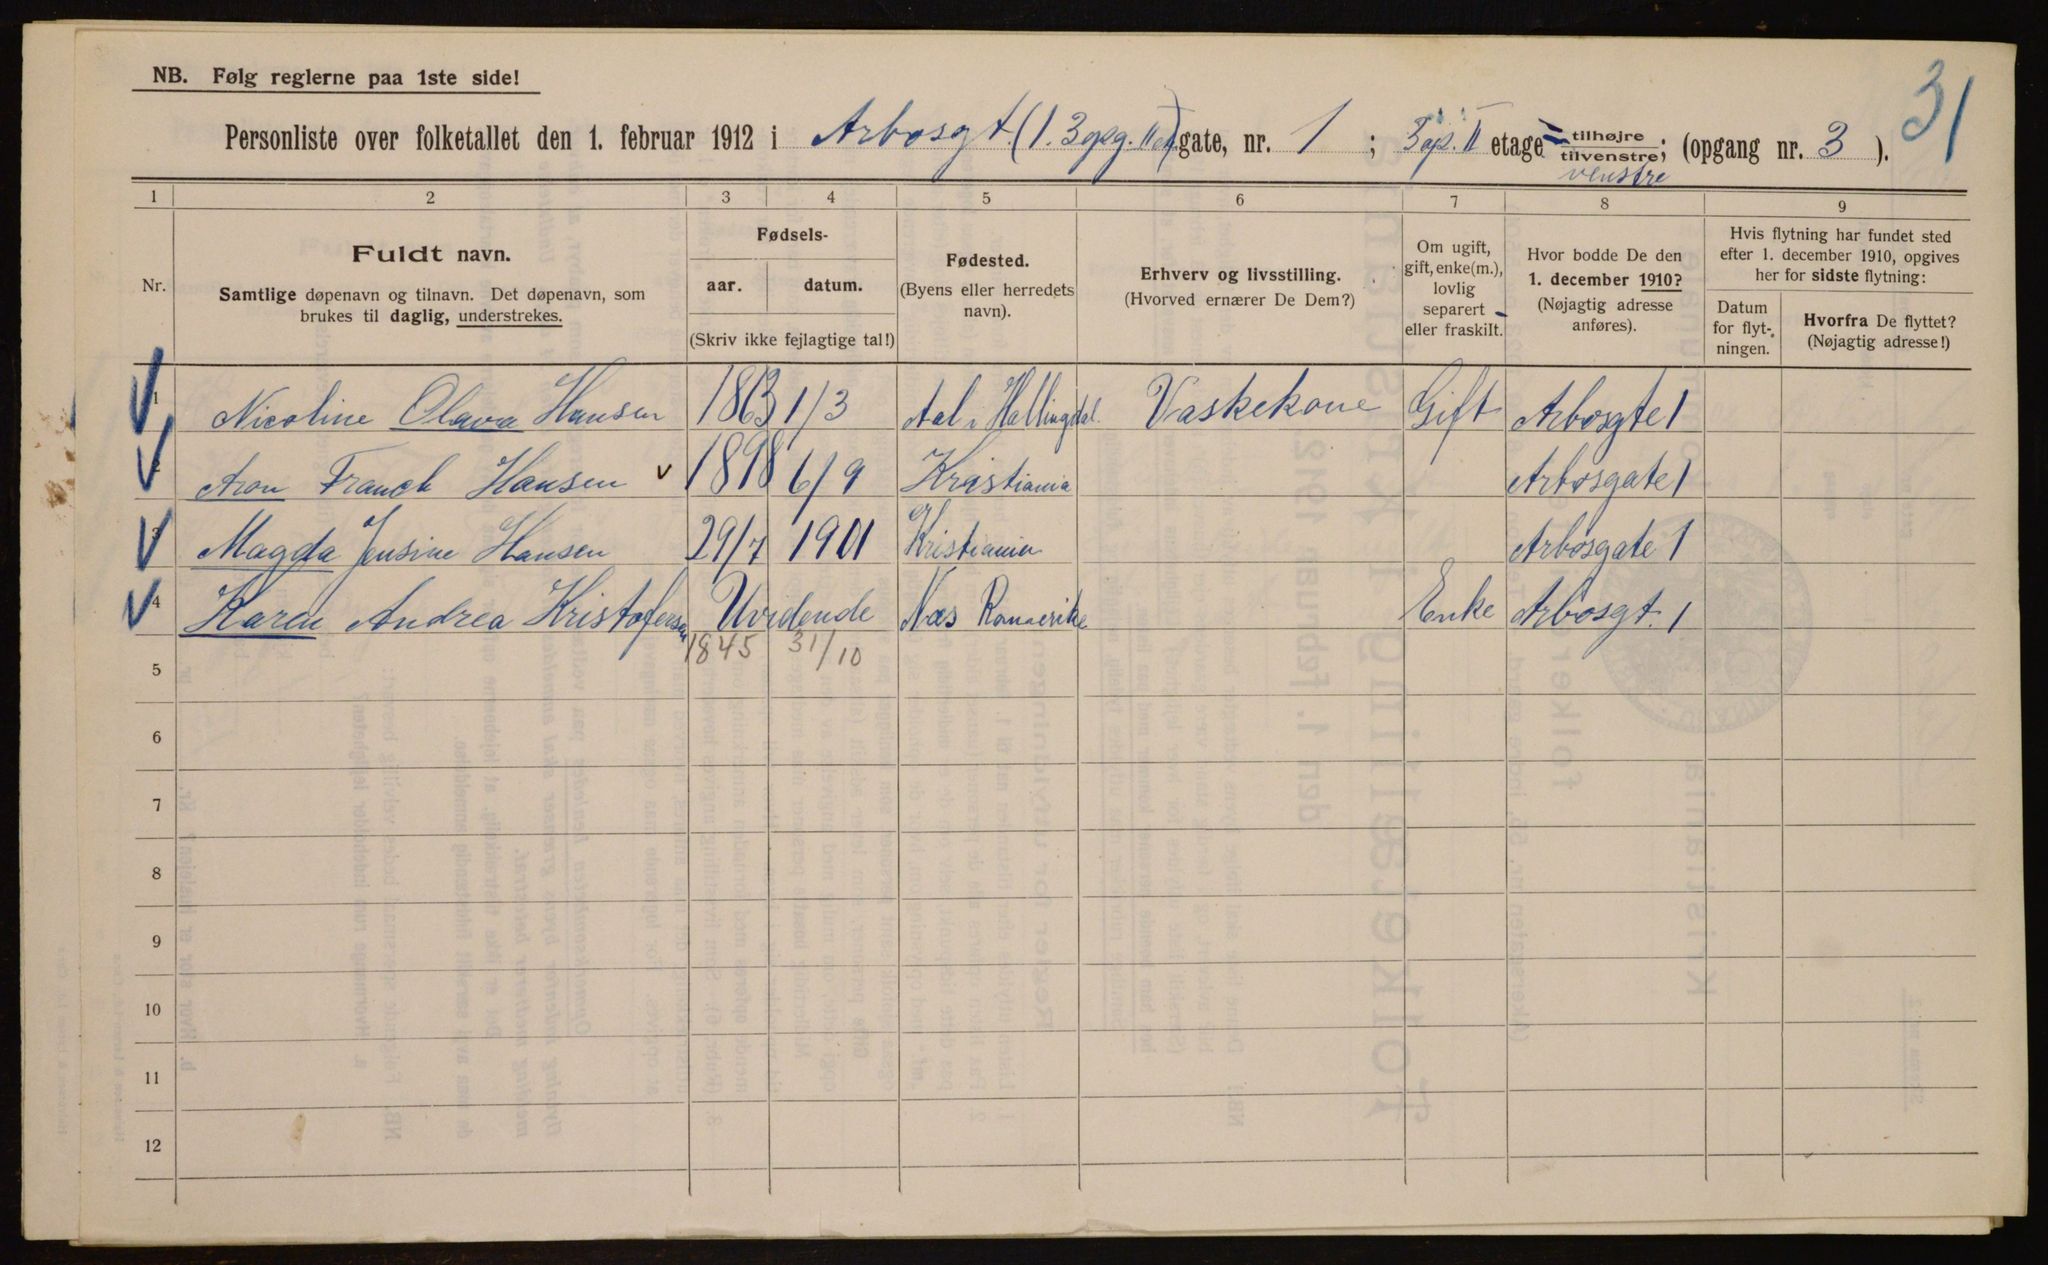 31
NB. Følg reglerne paa 1ste side!
Personliste over folketallet den 1. februar 1912 i Arbosgt. (1. 3 opg. II et.) gate, nr. 1 ; 3 op. II etage = tilhøjre tilvenstre; (opgang nr. 3 ).
venstre
1 2 3 4 5 6 7 8 9
Nr.
Fuldt navn.
Samtlige døpenavn og tilnavn. Det døpenavn, som
brukes til daglig, understrekes.
Fødsels-
aar. datum.
(Skriv ikke fejlagtige tal!)
Fødested.
(Byens eller herredets
navn).
Erhverv og livsstilling.
(Hvorved ernærer De Dem?)
Om ugift,
gift, enke(m.),
lovlig
separert
eller fraskilt.
Hvor bodde De den
1. december 1910?
(Nøjagtig adresse
anføres).
Hvis flytning har fundet sted
efter 1. december 1910, opgives
her for sidste flytning:
Datum
for flyt-
ningen.
Hvorfra De flyttet?
(Nøjagtig adresse!)
1 Nicoline Olava Hansen 1863 1/3 Aal i Hallingdal. Vaskekone Gift Arbosgte 1
2 Aron Franck Hansen v 1898 6/9 Kristiania Arbosgate 1
3 Magda Jensine Hansen 29/7 1901 Kristiania Arbosgate 1
4 Karen Andrea Kristofersen Uvidende Næs Romerike Enke Arbosgt. 1
1845 31/10
5
6
7
8
9
10
11
12